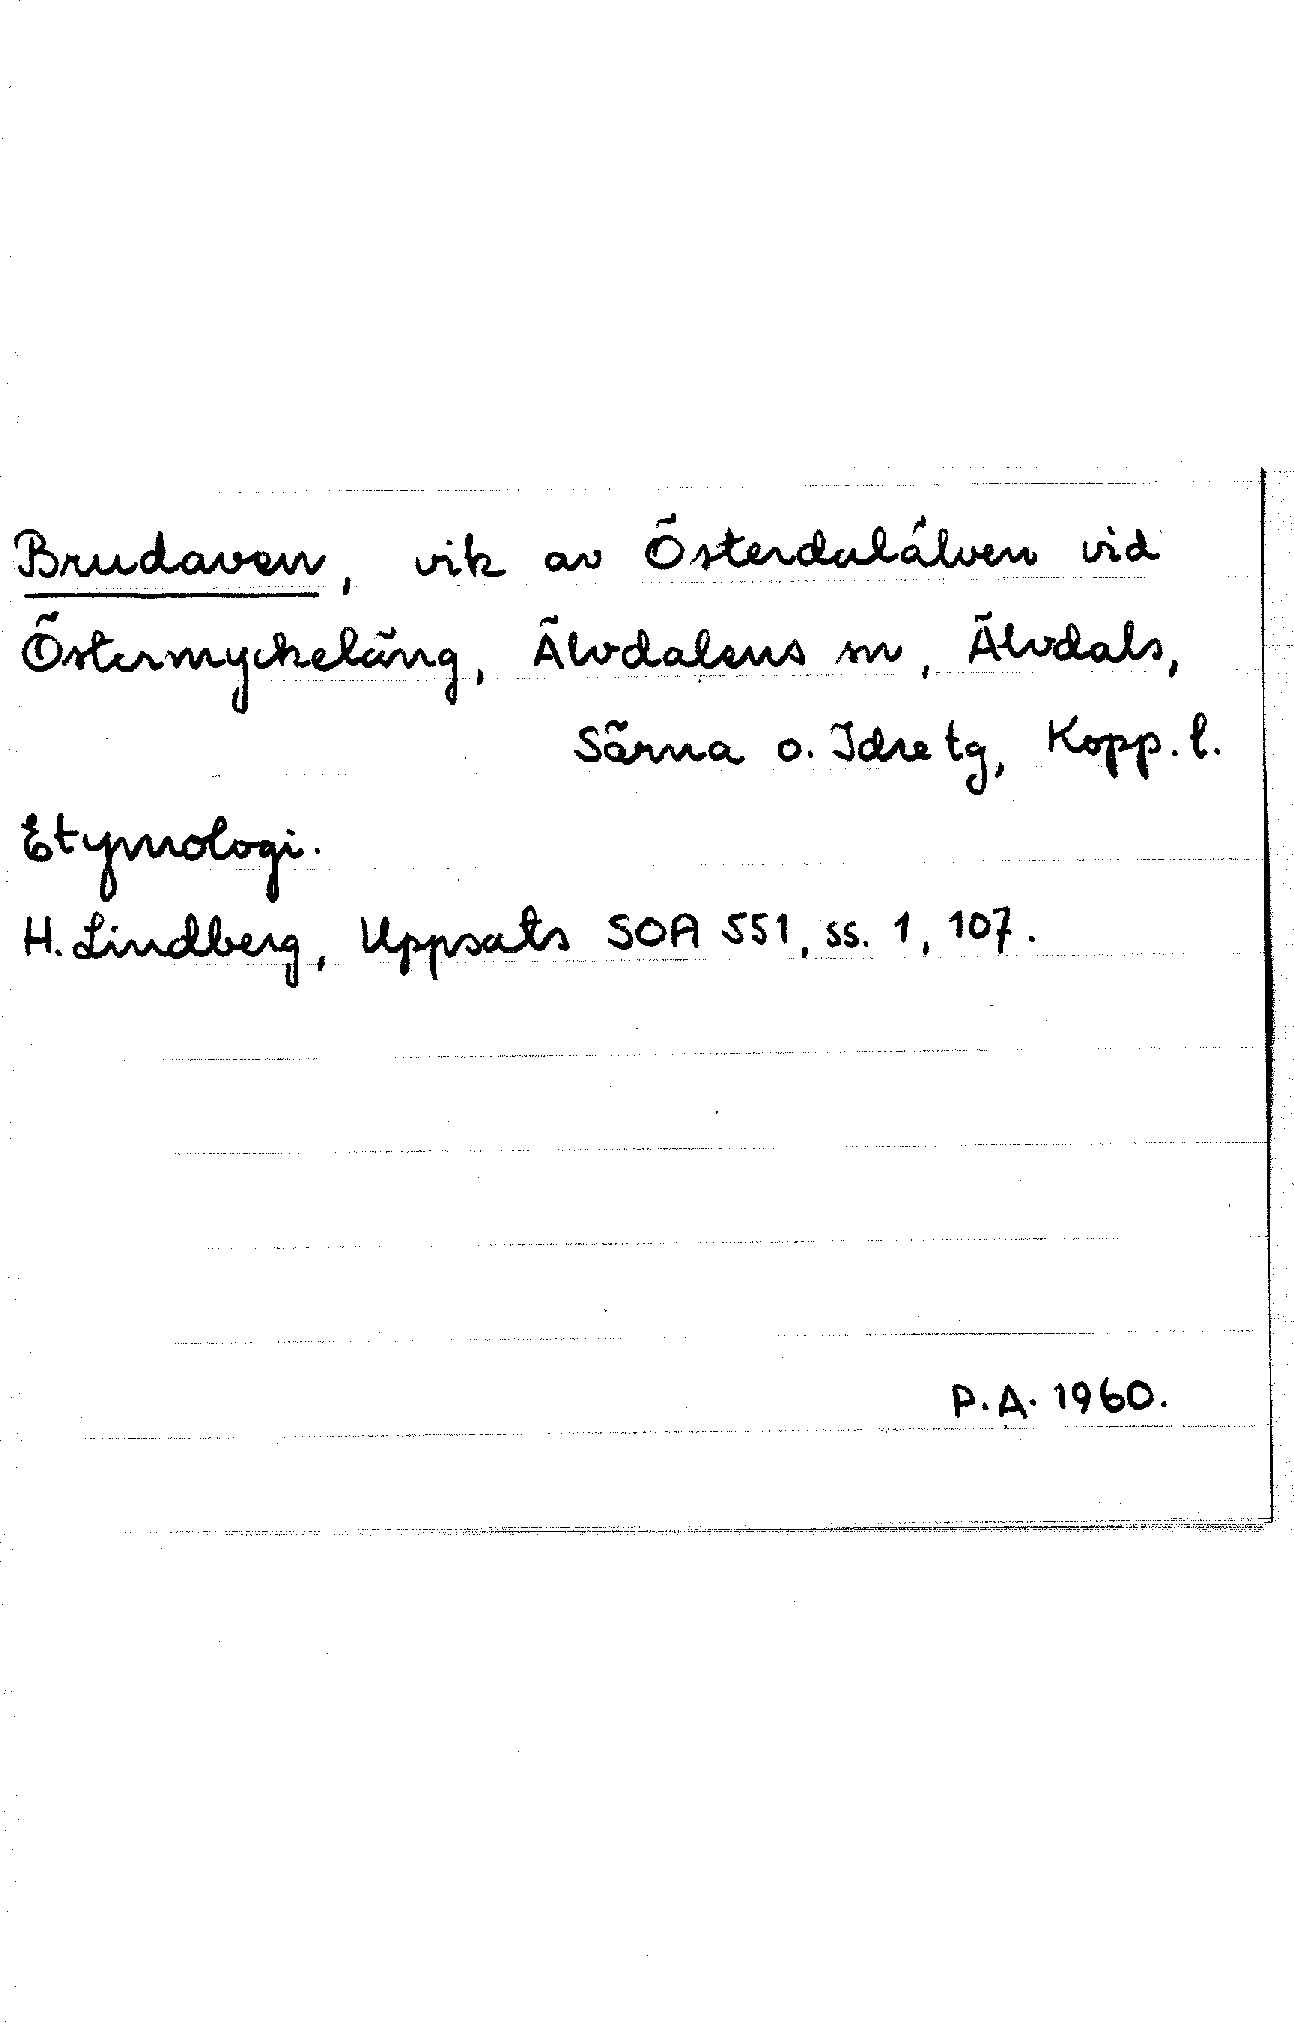 Brudaven, vik av Österdalälven vid
Östermyckeläng, Älvdalens sn, Älvdals,
Särna o. Idre tg, Kopp. l.
Etymologi.
H. Lindberg, Uppsats SOA 551, ss. 1, 107.
P.A. 1960.